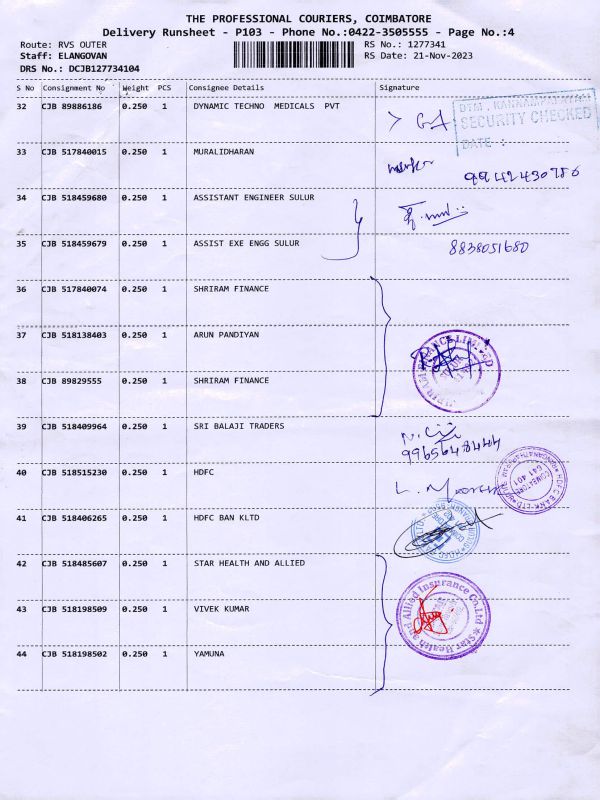 THE PROFESSIONAL COURIERS, COIMBATORE
Delivery Runsheet - P103 - Phone No.:0422-3505555 - Page No.:4
Route: RVS OUTER RS No.: 1277341
Staff: ELANGOVAN RS Date: 21-Nov-2023
DRS No.: DCJB127734104
S No Consignment No Weight PCS Consignee Details Signature
32 CJB 89886186 0.250 1 DYNAMIC TECHNO MEDICALS PVT
SECURITY CHECKED
DATE :
33 CJB 517840015 0.250 1 MURALIDHARAN
9942430786
34 CJB 518459680 0.250 1 ASSISTANT ENGINEER SULUR
35 CJB 518459679 0.250 1 ASSIST EXE ENGG SULUR 8838051680
36 CJB 517840074 0.250 1 SHRIRAM FINANCE
37 CJB 518138403 0.250 1 ARUN PANDIYAN
38 CJB 89829555 0.250 1 SHRIRAM FINANCE
39 CJB 518409964 0.250 1 SRI BALAJI TRADERS
9965648444
40 CJB 518515230 0.250 1 HDFC
HDFC BANK LTD
641 401
41 CJB 518406265 0.250 1 HDFC BAN KLTD
42 CJB 518485607 0.250 1 STAR HEALTH AND ALLIED
43 CJB 518198509 0.250 1 VIVEK KUMAR
Star Health and Allied Insurance Co.Ltd
44 CJB 518198502 0.250 1 YAMUNA